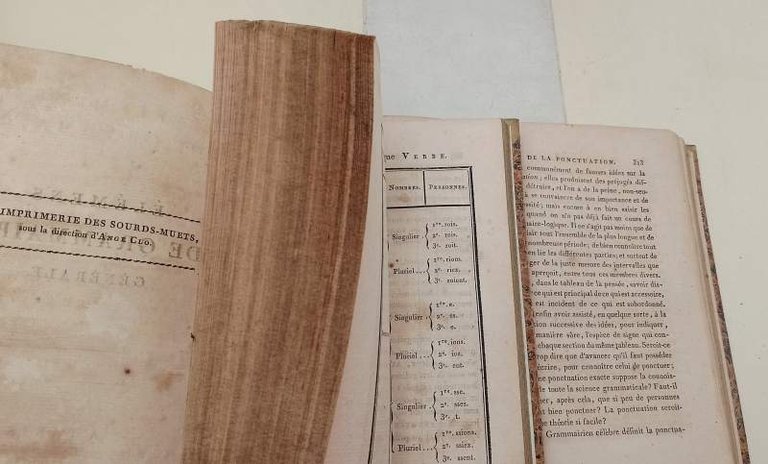 IMPRIMERIE DES SOURDS-MUETS,
sous la direction d'ANGE CLO.
VERBE.
NOMBRES. PERSONNES.
Singulier
1re. rois.
2e. rois.
3e. roit.
Pluriel
1re. rions.
2e. riez.
3e. roient.
Singulier
1re. e.
2e. es.
3e. e.
Pluriel
1re. ions.
2e. iez.
3e. ent.
Singulier
1re. sse.
2e. sses.
3e. t.
Pluriel
1re. ssions.
2e. ssiez.
3e. ssent.
DE LA PONCTUATION. 313
communément de fausses idées sur la
; elles produisent des préjugés dif-
détruire, et l'on a de la peine, non-seu-
se convaincre de son importance et de
; mais encore à en bien saisir les
quand on n'a pas déjà fait un cours de
maire-logique. Il ne s'agit pas moins que de
tout l'ensemble de la plus longue et de
nombreuse période; de bien connoître tout
en lie les différentes parties; et surtout de
ger de la juste mesure des intervalles que
aperçoit, entre tous ces membres divers.
, dans le tableau de la pensée, savoir dis-
ce qui est principal de ce qui est accessoire,
est incident de ce qui est subordonné.
enfin avoir assisté, en quelque sorte, à la
tion successive des idées, pour indiquer,
manière sûre, l'espèce de signe qui con-
chaque section du même tableau. Seroit-ce
trop dire que d'avancer qu'il faut posséder
écrire, pour connoître celui de ponctuer;
ne ponctuation exacte suppose la connois-
e toute la science grammaticale? Faut-il
ner, après cela, que si peu de personnes
t bien ponctuer? La ponctuation seroit-
ne théorie si facile?
Grammairien célèbre définit la ponctua-